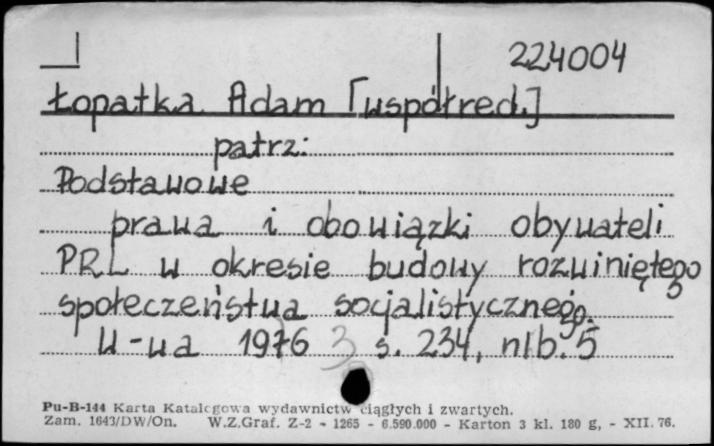 224004
Łopatka Adam [współred.]
patrz:
Podstawowe
prawa i obowiązki obywateli
PRL w okresie budowy rozwiniętego
społeczeństwa socjalistycznego.
W-wa 1976 3 s. 234, nlb. 5
Pu-B-144 Karta Katalogowa wydawnictw ciągłych i zwartych.
Zam. 1643/DW/On. W.Z.Graf. Z-2 - 1265 - 6.590.000 - Karton 3 kl. 180 g, - XII. 76.